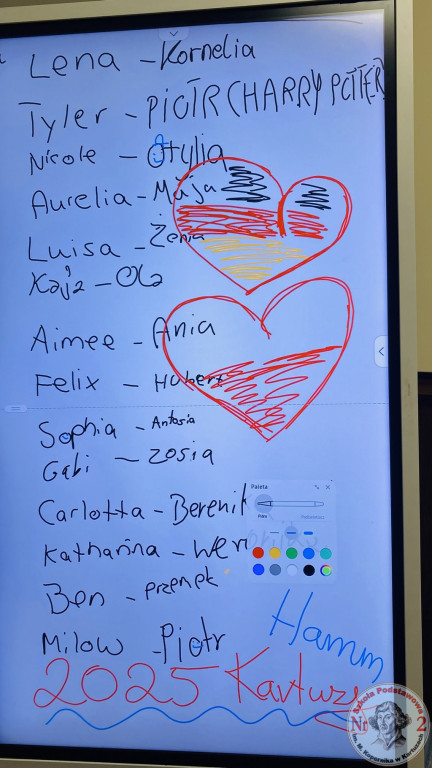 Lena - Kornelia
Tyler - PIOTR (HARRY POTTER)
Nicole - Otylia
Aurelia - Maja
Luisa - Żenia
Kaja - Ola
Aimee - Ania
Felix - Hubert
Sophia - Antosia
Gabi - Zosia
Carlotta - Berenik
Paleta
Katharina - Wer
Ben - Przemek
Milow - Piotr
Hamm
2025 Kartuzy
Szkoła Podstawowa
Nr 2
im. M. Kopernika w Kartuzach